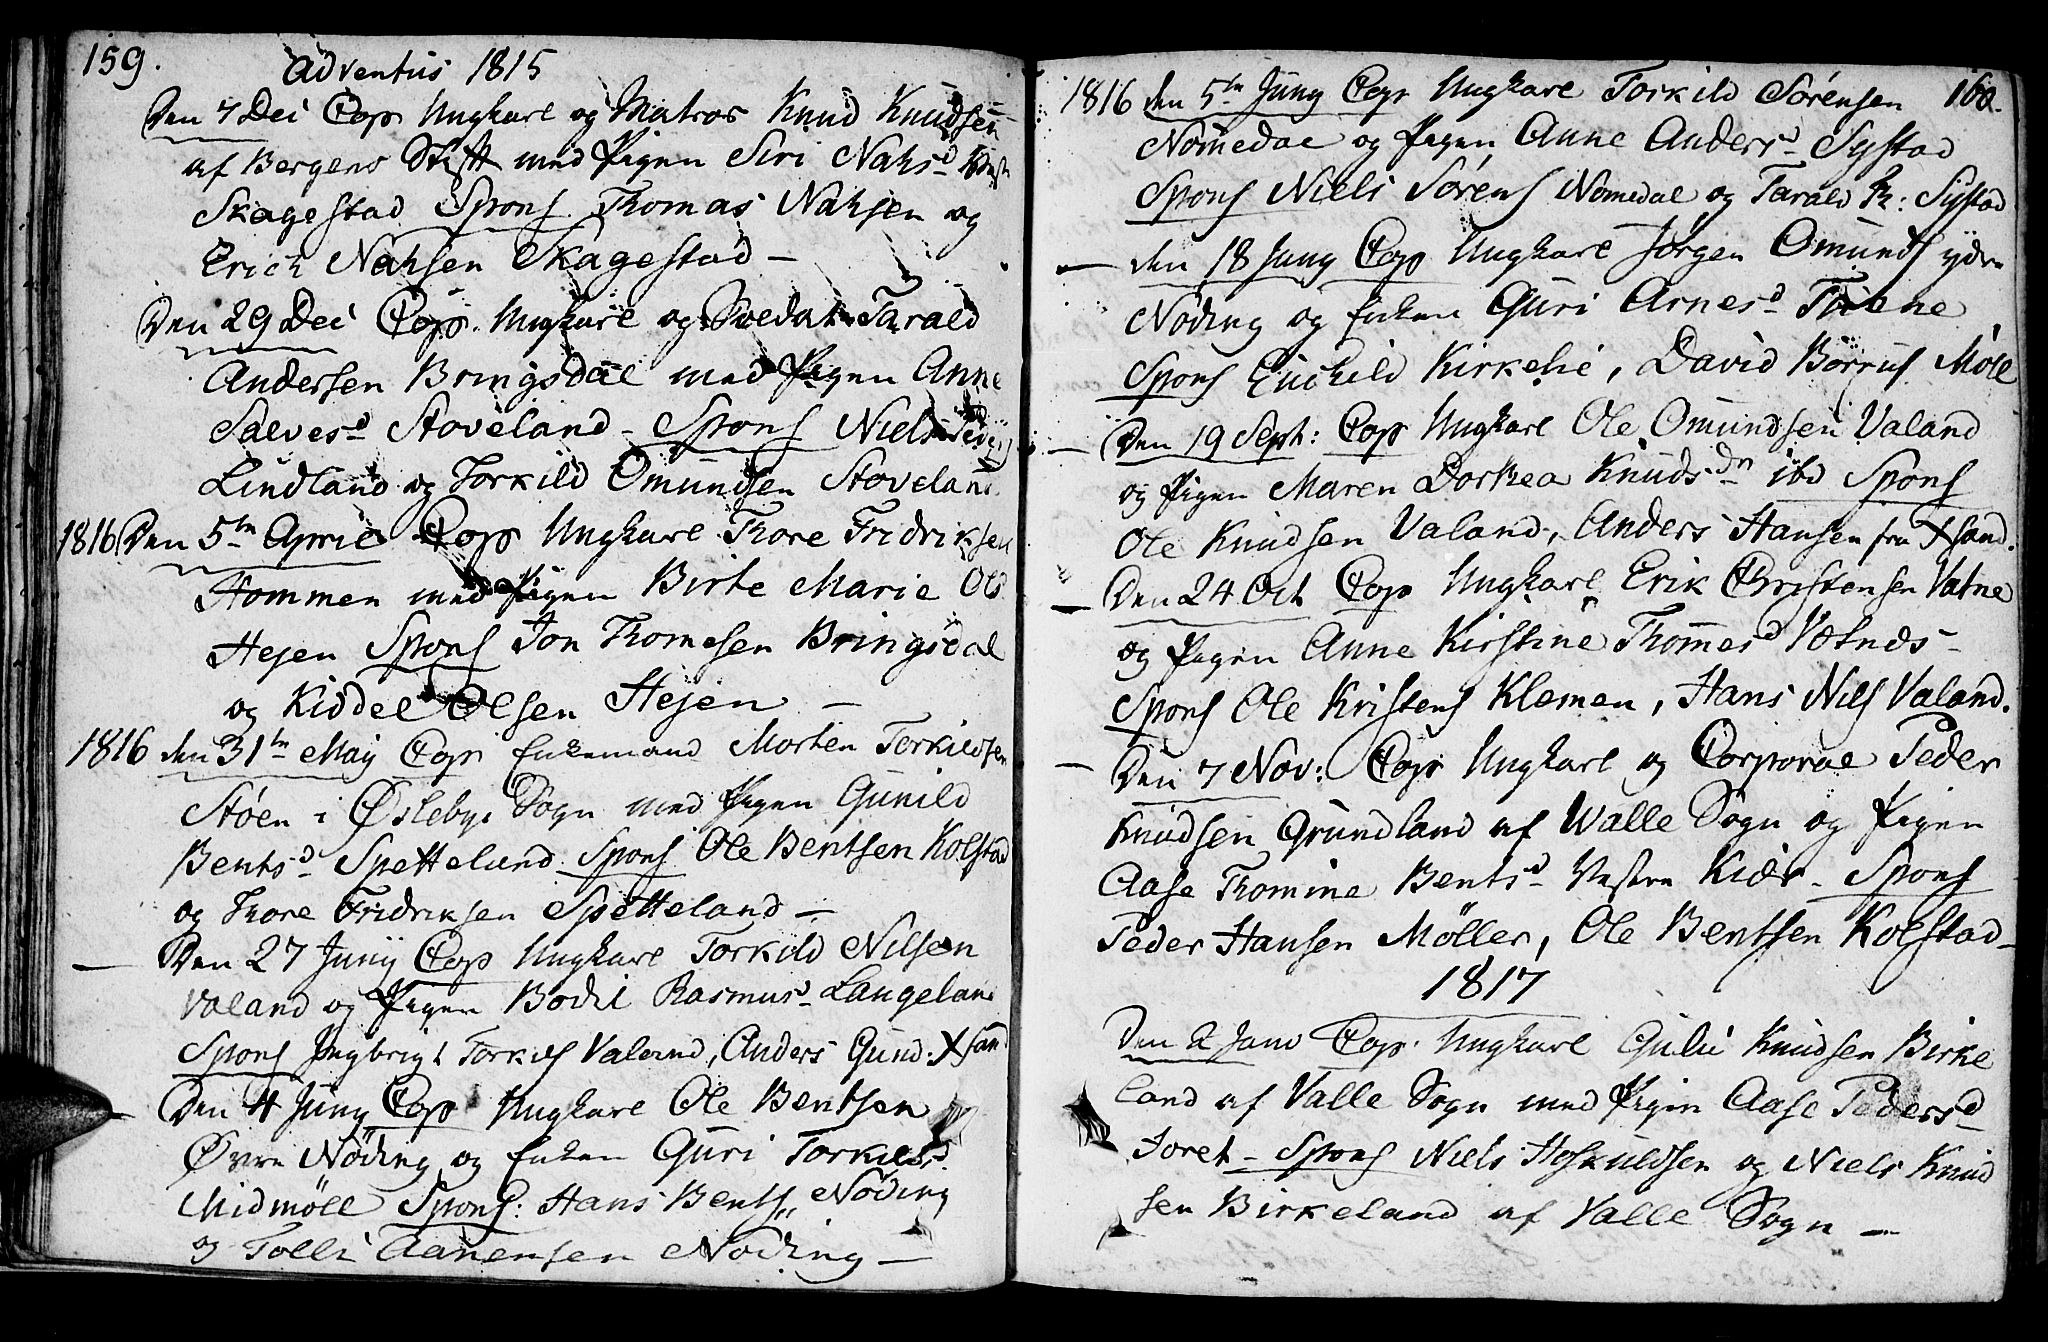 159.
Adventus 1815
Den 7 Dec Cop Ungkarl og Matros Knud Knudsen
af Bergens Stift med Pigen Siri Nahs d
Skagestad Spons Thomas Nahsen og
Erich Nahsen Skagestad —
Den 29 Dec Cop. Ungkarl og Soldat Tarald
Andersen Bringsdal med Pigen Anne
Salves d Stoveland - Spons Niels
Lindland og Torkild Omundsen Stoveland
1816 Den 5te April Cop Ungkarl Thore Fridriksen
Hommen med Pigen Birte Marie Ols
Hejen Spons Jon Thomesen Bringsdal
og Kiddel Olsen Hejen —
1816 den 31te May Cop Enkemand Morten Torkildsen
Støen i Øslebye Sogn med Pigen Gunild
Bents d Spetteland Spons Ole Bentsen Kolstad
og Thore Fridriksen Spetteland —
— Den 27 Juny Cop Ungkarl Torkild Nilsen
Valand og Pigen Bodil Rasmus d Langeland
Spons Ingbrigt Torkils Valand, Anders Gund. Xsan
— Den 4 Juny Cop Ungkarl Ole Bentsen
Øvre Nøding og Enken Guri Torkilsd
Midmøll Spons: Hans Bents Nøding
og Tolli Aanensen Nøding —
160.
1816 den 5te Juny Cop Ungkarl Torkild Sørensen
Nomedal og Pigen Anne Anders d Systad
Spons Niels Sørens Nomedal og Tarald K: Systad
— den 18 Juny Cop Ungkarl Jørgen Omunds ydre
Nøding og Enken Guri Arnes d
Spons Enchild Kirkelie, David Børrus Møll
— Den 19 Sept: Cop Ungkarl Ole Omundsen Valand
og Pigen Maren Dorthea Knuds dn ibd Spons
Ole Knudsen Valand, Anders Hansen fra Xsand.
— Den 24 Oct Cop Ungkarl Erik Christensen Vatne
og Pigen Anne Kirstine Thomes d Vatnes -
Spons Ole Kristens Klemen, Hans Nils Valand.
— Den 7 Nov: Cop Ungkarl og Corporal Peder
Knudsen Grundland af Walle Sogn og Pigen
Aase Thomine Bents d Vestre Kiær - Spons
Peder Hansen Møller, Ole Bentsen Kolstad -
1817
Den 2 Janv Cop. Ungkarl Gulic Knudsen Birke
land af Valle Sogn med Pigen Aase Peders d
Toret - Spons Niels Hoskuldsen og Niels Knud
sen Birkeland af Valle Sogn —